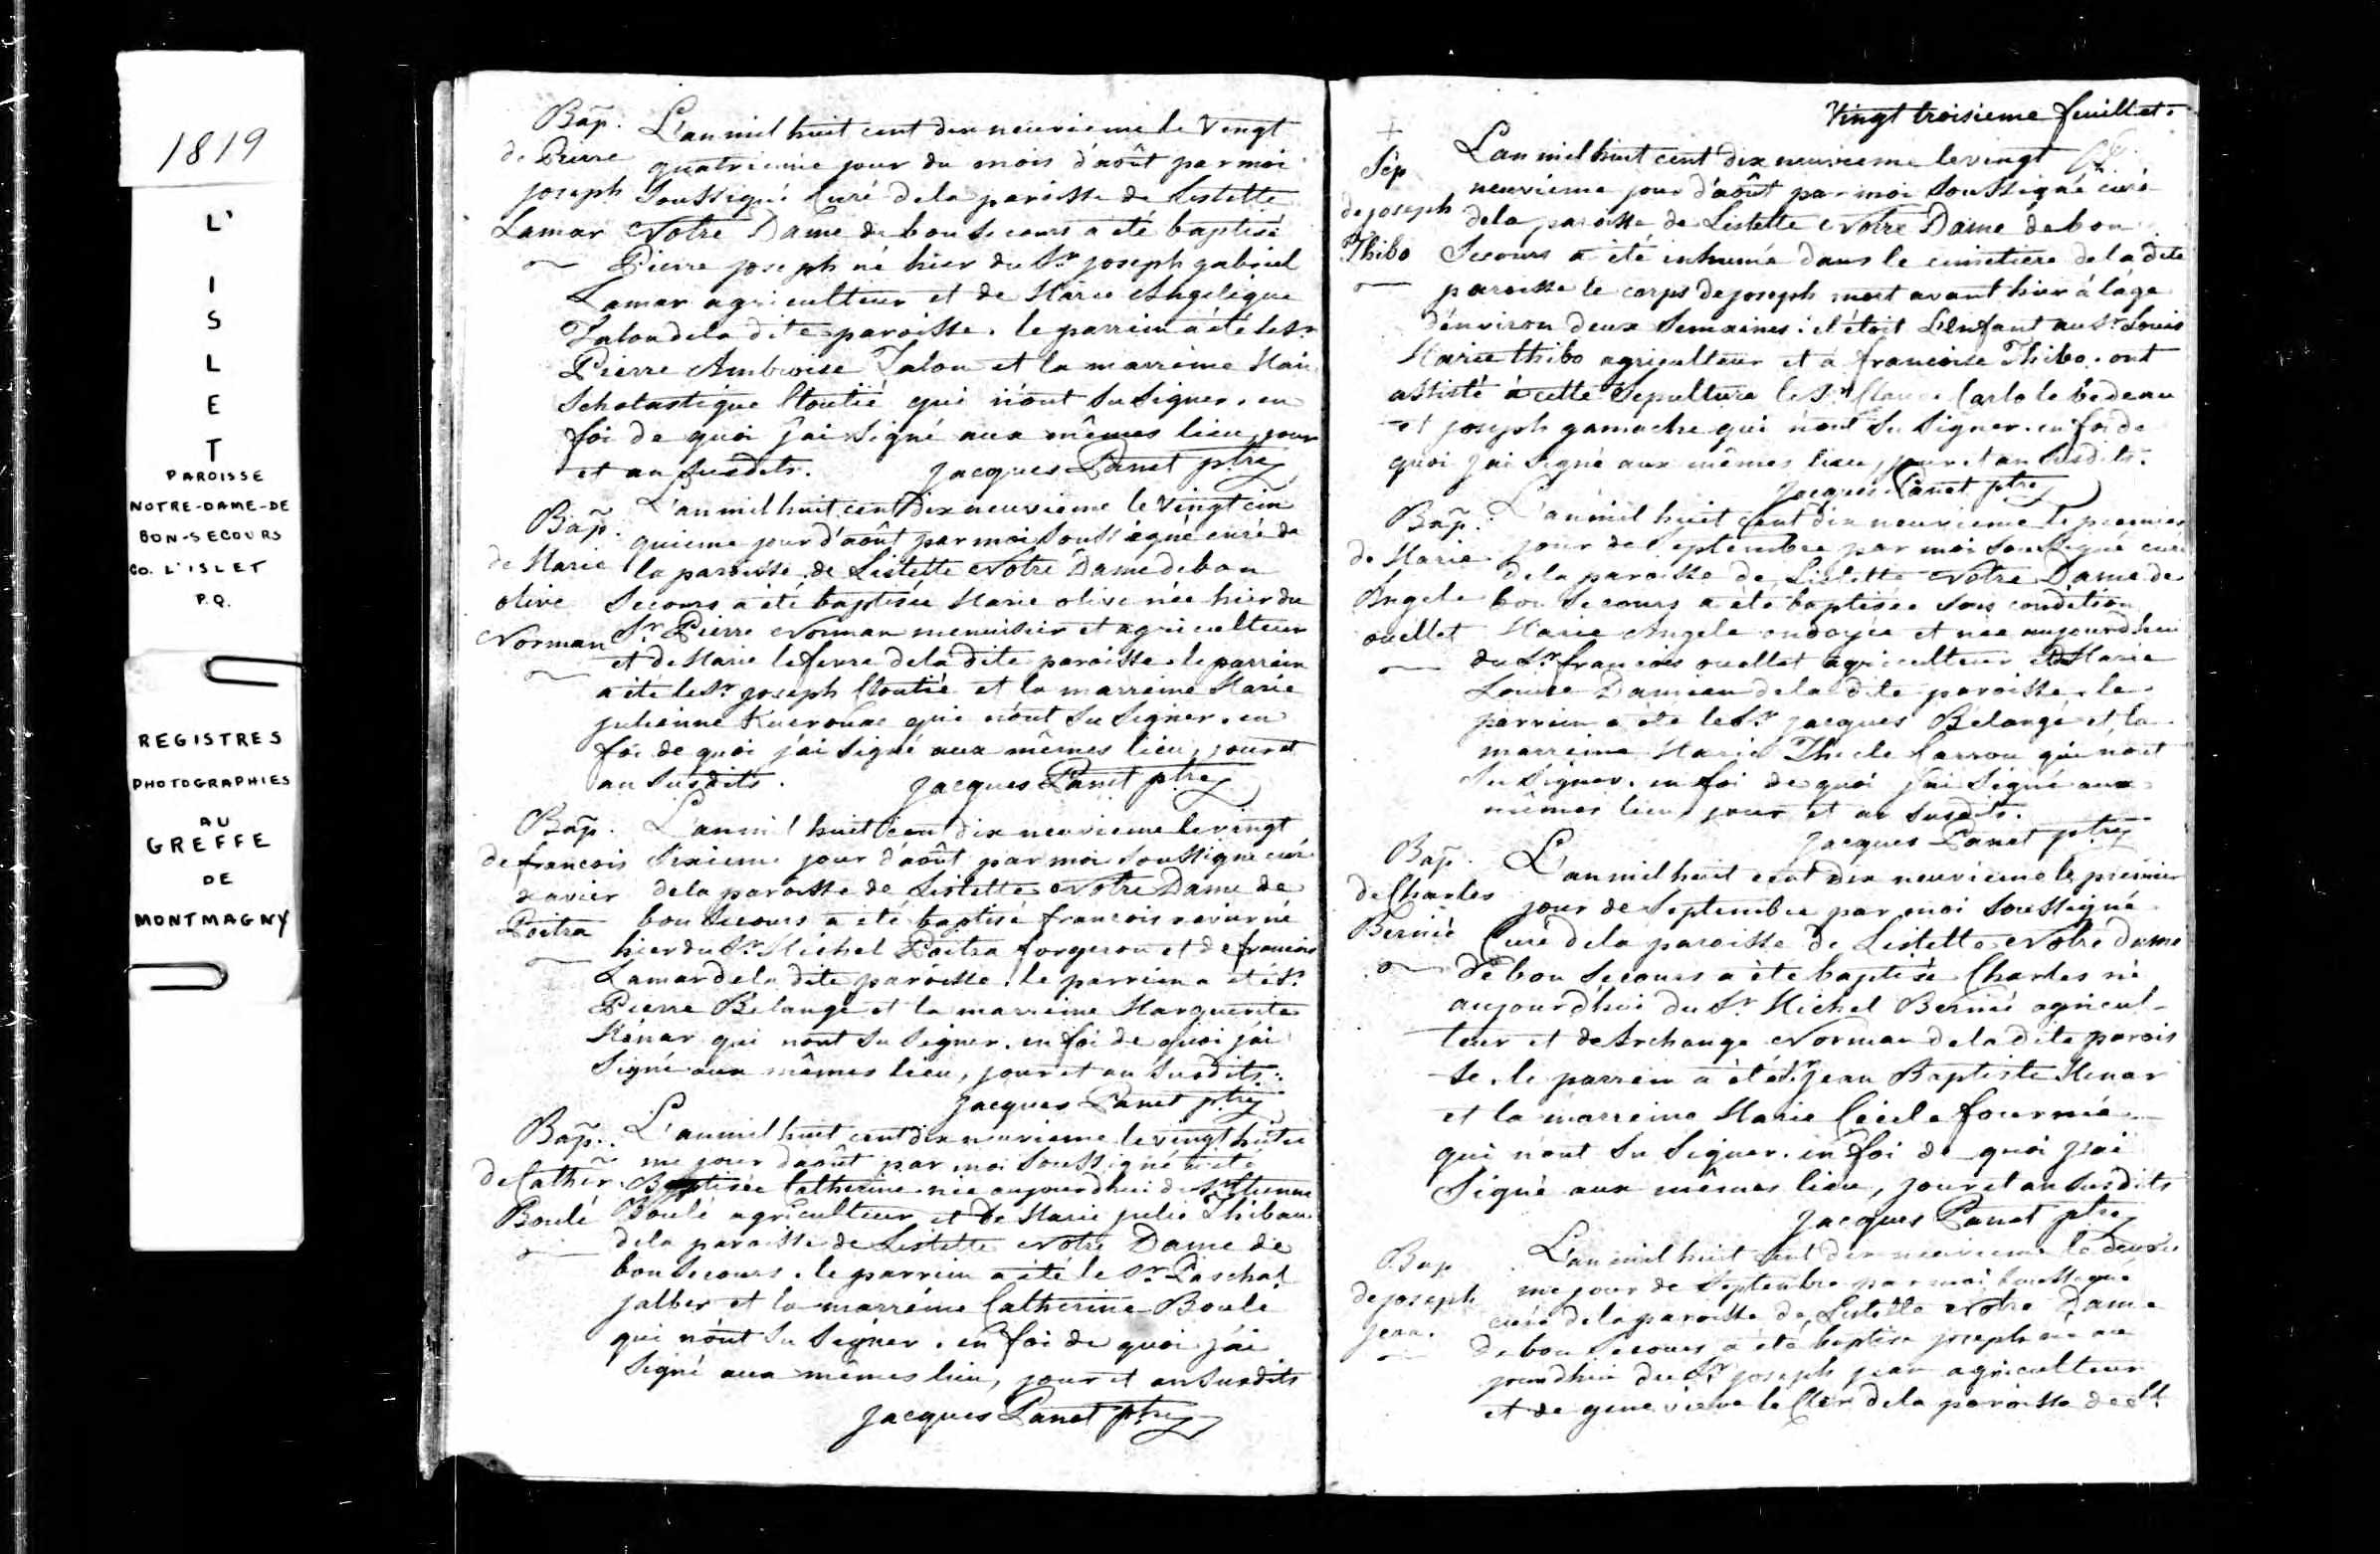 1819
L'
I
S
L
E
T
PAROISSE
NOTRE-DAME-DE
BON-SECOURS
CO. L'ISLET
P.Q.
REGISTRES
PHOTOGRAPHIES
AU
GREFFE
DE
MONTMAGNY
Bap. L'an mil huit cent dix neuvieme le Vingt
de Pierre quatrieme jour du mois d'août par moi
joseph Soussigné Curé dela paroisse de Lislette
Lamar Notre Dame de bon Secours a été baptisé
Pierre joseph né hier du Sr joseph gabriel
Lamar agriculteur et de Marie Angelique
Talon dela dite paroisse. le parrein a été le Sr
Pierre Ambroise Talon et la marreine Marie
Scholastique Cloutié qui n'ont Su Signer. en
foi de quoi j'ai Signé aux mêmes lieu, jour
et an Susdits. Jacques Panet ptre
Bap. L'an mil huit cent Dix neuvieme le Vingt cin
quieme jour d'août par moi Soussigné curé de
de Marie la paroisse de Lislette Notre Dame de bon
olive Secours a été baptisée Marie olive née hier du
Norman Sr Pierre Norman menuisier et agriculteur
et de Marie lefevre dela dite paroisse. le parrein
a été le Sr joseph Cloutié et la marreine Marie
julienne Kuerouac qui n'ont Su Signer. en
foi de quoi j'ai Signé aux mêmes lieu, jour et
an Susdits. Jacques Panet ptre
Bap. L'an mil huit cent dix neuvieme le vingt
de francois Sixieme jour d'août par moi Soussigné curé
xavier dela paroisse de Lislette Notre Dame de
Poitra bon Secours a été baptisé francois xavier né
hier du Sr Michel Poitra forgeron et de francoise
Lamar dela dite paroisse. le parrein a été Sr
Pierre Belangé et la marreine Marguerite
Ménar qui n'ont Su Signer. en foi de quoi j'ai
Signé aux mêmes lieu, jour et an Susdits.
Jacques Panet ptre
Bap. L'an mil huit cent dix neuvieme le vingt huitie
me jour d'août par moi Soussigné a été
de Cather. Baptisée Catherine née aujourd'hui du Sr Etienne
Boulé Boulé agriculteur et de Marie julie Thibau
dela paroisse de Lislette Notre Dame de
bon Secours. le parrein a été le Sr Paschal
jalber et la marreine Catherine Boulé
qui n'ont Su Signer. en foi de quoi j'ai
Signé aux mêmes lieu, jour et an Susdits
Jacques Panet ptre
Vingt troisieme feuillet.
+
Sép L'an mil huit cent dix neuvieme le vingt
neuvieme jour d'août par moi Soussigné curé
de joseph dela paroisse de Lislette Notre Dame de bon
Thibo Secours a été inhumé dans le cimetiere dela dite
paroisse le corps de joseph mort avant hier à l'age
d'environ deux Semaines: il étoit L'Enfant au Sr Louis
Marie thibo agriculteur et a francoise Thibo. ont
assisté à cette Sepulture le Sr Carlo le bedeau
et joseph gamache qui n'ont Su Signer. en foi de
quoi j'ai Signé aux mêmes lieu, jour et an Susdits.
Jacques Panet ptre
Bap. L'an mil huit cent dix neuvieme le premier
jour de Septembre par moi Soussigné curé
de Marie dela paroisse de Lislette Notre Dame de
Angele bon Secours a été baptisée Sous condition
ouellet Marie Angele ondoyée et née aujourd'hui
du Sr francois ouellet agriculteur et de Marie
Louise Damien dela dite paroisse. le
parrein a été le Sr jacques Bélangé et la
marreine Marie Thecle Carrou qui n'ont
Su Signer. en foi de quoi j'ai Signé aux
mêmes lieu, jour et an Susdits.
Jacques Panet ptre
Bap. L'an mil huit cent dix neuvieme le premier
de Charles jour de Septembre par moi Soussigné
Bernié Curé dela paroisse de Lislette Notre dame
de bon Secours a été baptisé Charles né
aujourd'hui du Sr Michel Bernié agricul-
teur et de Archange Norman dela dite parois
se. le parrein a été Sr jean Baptiste Menar
et la marreine Marie Cécile fournié
qui n'ont Su Signer. en foi de quoi j'ai
Signé aux mêmes lieu, jour et an Susdits
Jacques Panet ptre
Bap L'an mil huit cent dix neuvieme le deuxie
me jour de Septembre par moi Soussigné
de joseph curé dela paroisse de Lislette Notre Dame
jean. de bon Secours a été baptisé joseph né au
jourd'hui du Sr joseph jean agriculteur
et de genevieve le Cler dela paroisse de St